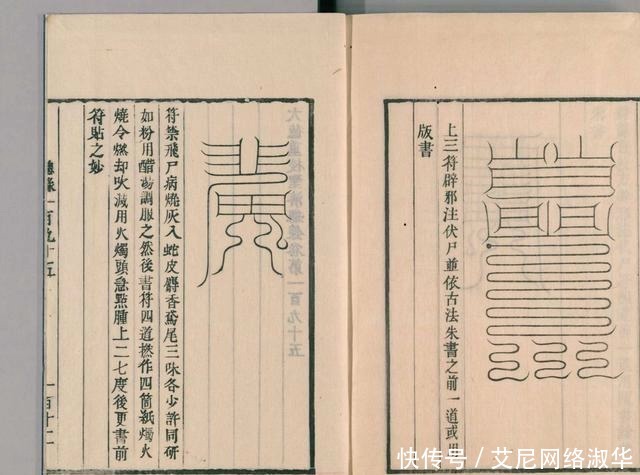 上三符辟邪注伏尸並依古法朱書之前一道或
版書
大德重校聖濟總錄卷第一百九十五
符禁飛尸病燒灰入蛇皮麝香鳶尾三味各少許同研
如粉用醋湯調服之然後書符四道撚作四箇紙燭火
燒令燃却吹滅用火燭頭急點腫上二七度後更書前
符貼之妙
總錄一百九十五
一百十二
快传号 / 艾尼网络淑华